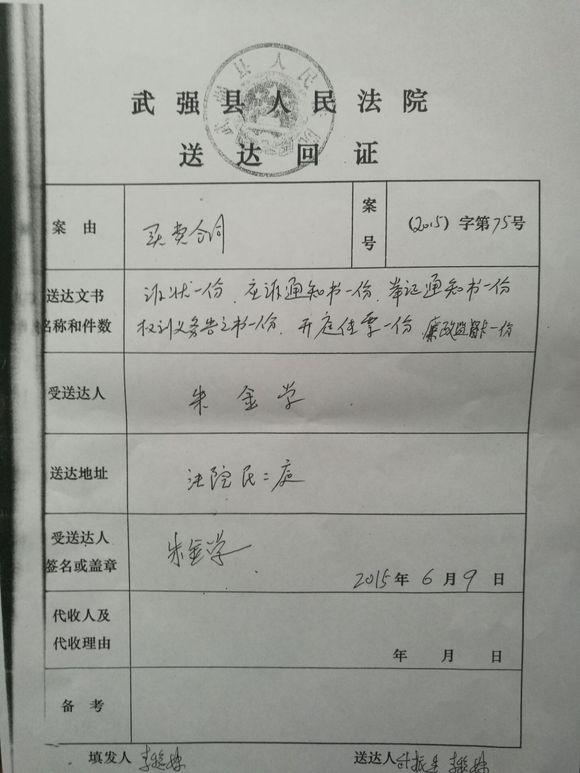 武强县人民法院
送达回证
案由 买卖合同 案号 (2015)字第75号
送达文书 诉状一份、应诉通知书一份、举证通知书一份
名称和件数 权利义务告之书一份、开庭传票一份、廉政监督卡一份
受送达人 朱金学
送达地址 法院民二庭
受送达人
签名或盖章 朱金学 2015年6月9日
代收人及
代收理由 年 月 日
备考
填发人 送达人